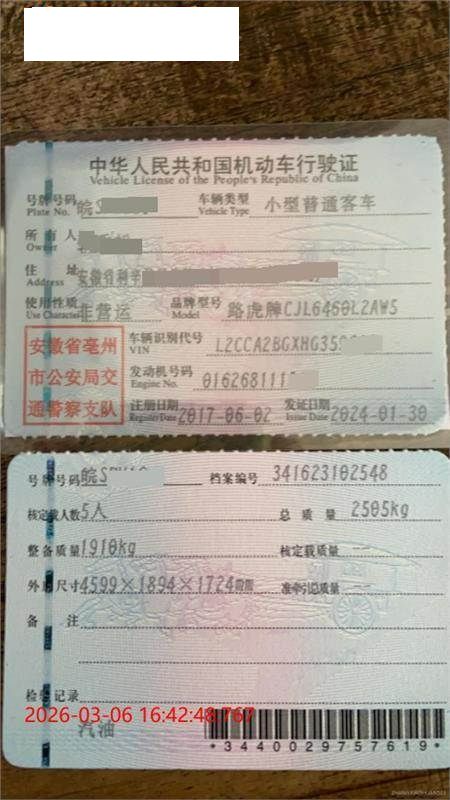 中华人民共和国机动车行驶证
Vehicle License of the People's Republic of China
号牌号码 皖S 车辆类型 小型普通客车
Plate No. Vehicle Type
所有人
Owner
住址 安徽省利辛
Address
使用性质 非营运 品牌型号 路虎牌CJL6460L2AW5
Use Character Model
安徽省亳州
市公安局交
通警察支队
车辆识别代号 L2CCA2BGXHG35
VIN
发动机号码 016268111
Engine No.
注册日期 2017-06-02 发证日期 2024-01-30
Register Date Issue Date
号牌号码 皖S 档案编号 341623102548
核定载人数 5人 总质量 2505kg
整备质量 1910kg 核定载质量 --
外廓尺寸 4599×1894×1724mm 准牵引总质量 --
备注
检验记录
2026-03-06 16:42:48:767
汽油
*3440029757619*